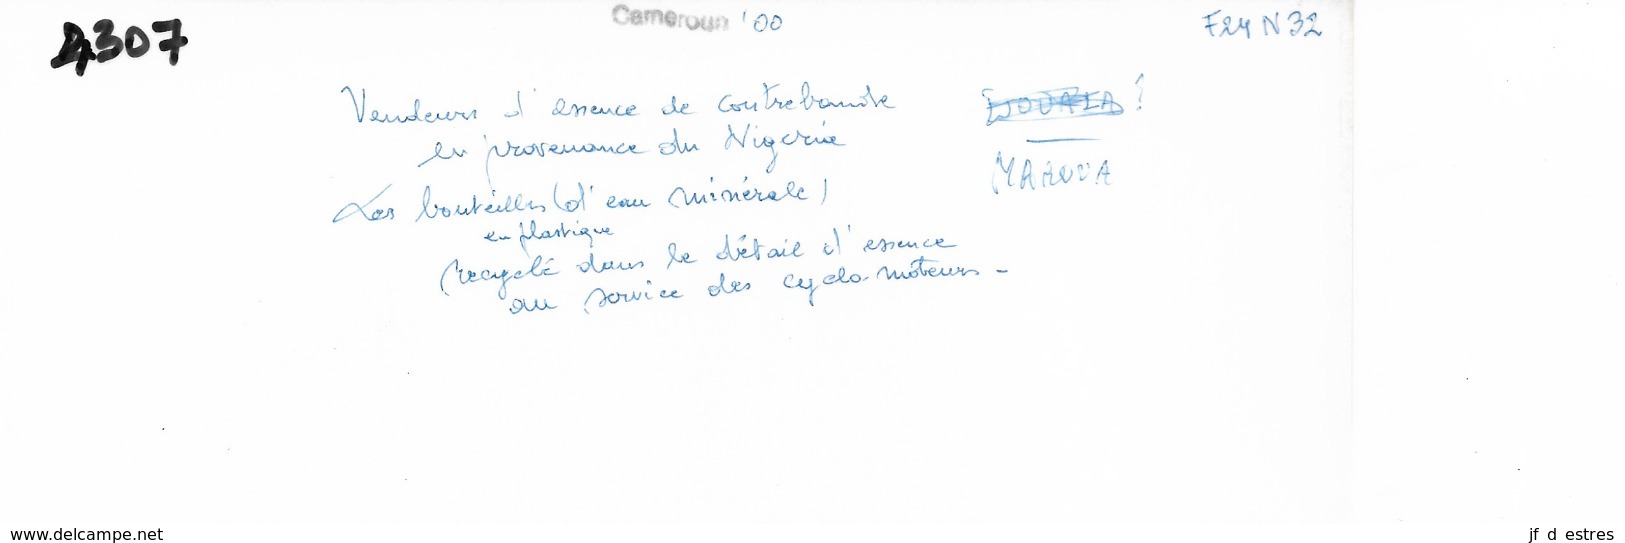 4307
Cameroun '00
F24 N 32
Vendeurs d'essence de contrebande
en provenance du Nigeria
DOUALA ?
MAROUA
Les bouteilles (d'eau minérale)
en plastique
recyclé dans le détail d'essence
au service des cyclo-moteurs -
www.delcampe.net
jf d estres